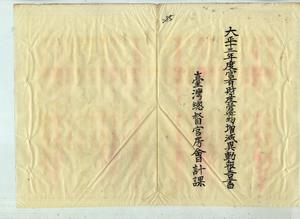 大正十三年度官有財產營造物增減異動報告書
臺灣總督官房會計課